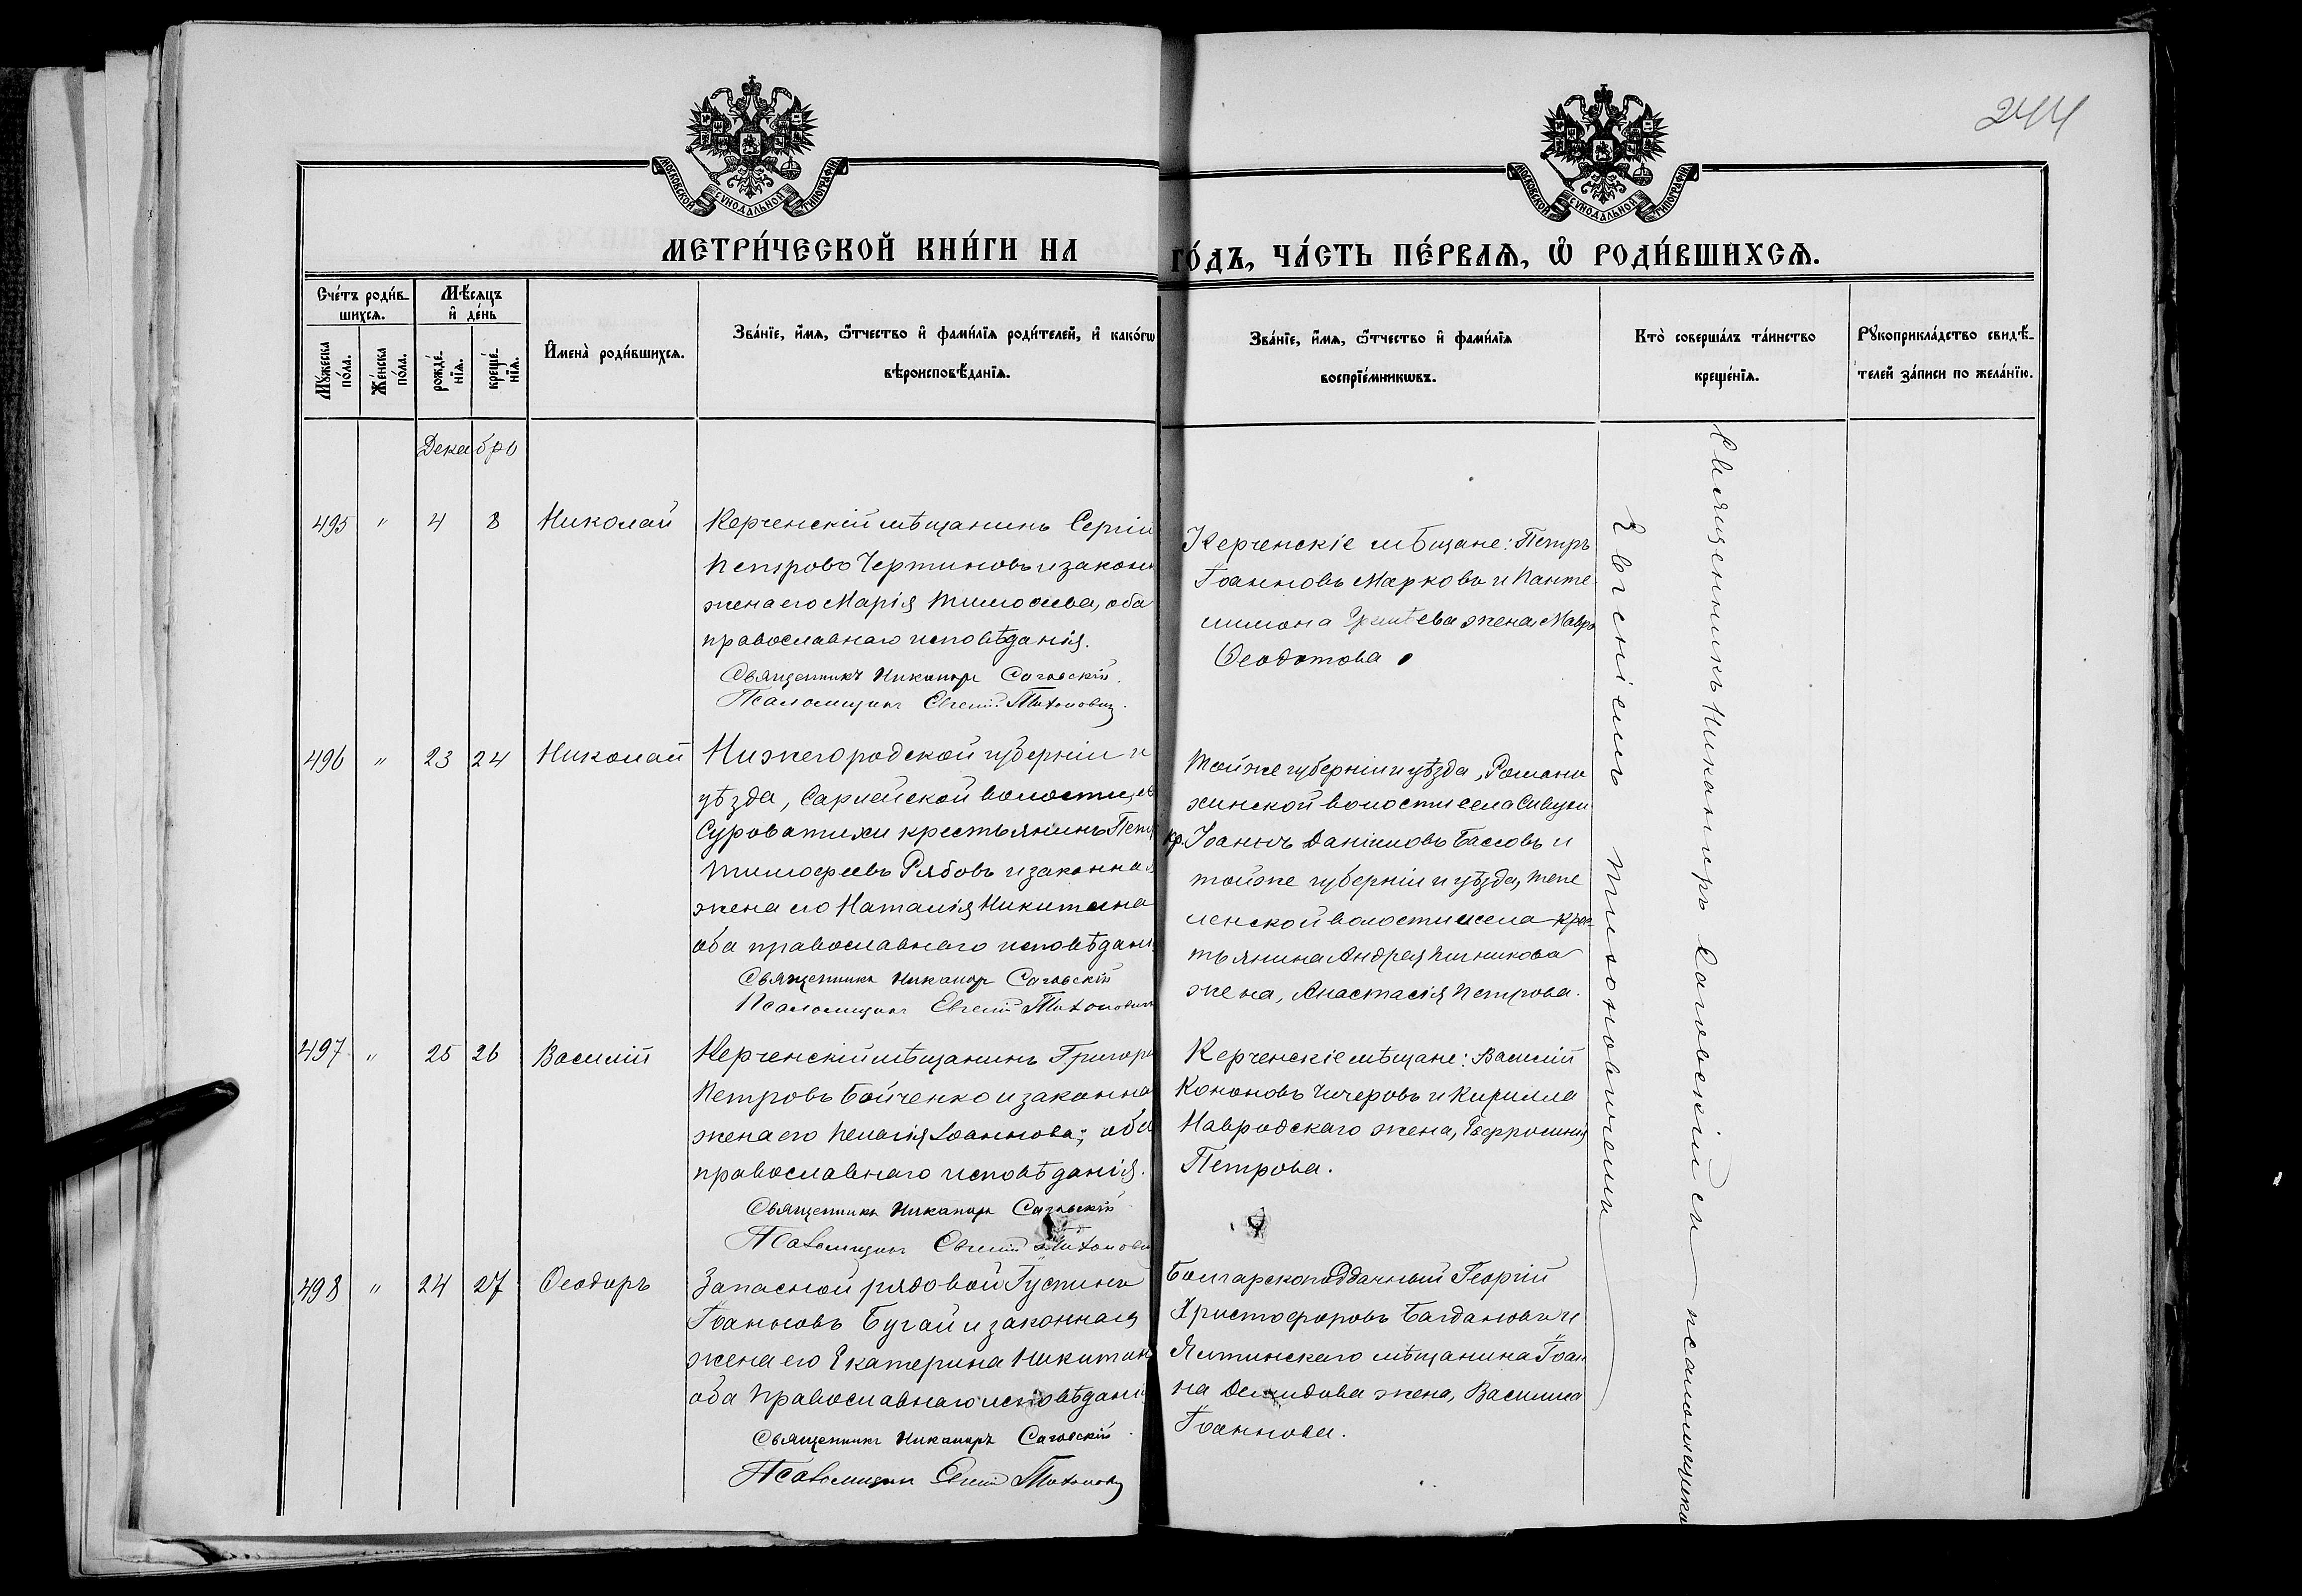 244
МОСКОВСКОЙ СѴНОДАЛЬНОЙ ТИПОГРАФІИ
МОСКОВСКОЙ СѴНОДАЛЬНОЙ ТИПОГРАФІИ
МЕТРИ́ЧЕСКОЙ КНИ́ГИ НА ГО́ДЪ, ЧА́СТЬ ПЕ́РВАѦ, Ѽ РОДИ́ВШИХСѦ.
Сче́тъ роди́в-
шихсѧ.
Мѣ́сѧцъ
и҆ де́нь
Мꙋ́жеска
по́ла.
Же́нска
по́ла.
рожде́-
нїѧ.
креще́-
нїѧ.
И҆мена̀ роди́вшихсѧ.
Зва́нїе, и҆́мѧ, ѻ҆́тчество и҆ фами́лїѧ роди́телей, и҆ како́гѡ
вѣроисповѣ́данїѧ.
Зва́нїе, и҆́мѧ, ѻ҆́тчество и҆ фами́лїѧ
воспрїе́мникѡвъ.
Кто̀ соверша́лъ та́инство
креще́нїѧ.
Рꙋкоприкла́дство свидѣ́-
телей за́писи по жела́нїю.
Декабрь
495 " 4 8 Николай
Керченскій мѣщанинъ Сергій
Петровъ Чертиновъ и законн
жена его Марія Тимоѳеева, оба
православнаго исповѣданія.
Священникъ Никаноръ Саговскій.
Псаломщикъ Евгеній Тихонович
Керченскіе мѣщане: Петръ
Іоанновъ Марковъ и Панте
лимона жена Мавра
Ѳеодотова
496 " 23 24 Николай
Нижегородской губерніи и
уѣзда, Сарлейской волости, с
Суроватихи крестьянинъ Петр
Тимофеевъ Рябовъ и законная
жена его Наталія Никитина
оба православнаго исповѣдані
Священникъ Никаноръ Саговскій
Псаломщикъ Евгеній Тихонович
Тойже губерніи и уѣзда, Романи
хинской волости села
кр. Іоаннъ Даниловъ Басовъ и
тойже губерніи и уѣзда, Тепе
ленской волости и села крес-
тьянина Андрея
жена, Анастасія Петрова.
497 " 25 26 Василій
Керченскій мѣщанинъ Григорі
Петровъ Бойченко и законна
жена его Пелагія Іоаннова; оба
православнаго исповѣданія.
Священникъ Никаноръ Саговскій
Псаломщикъ Евгеній Тихонови
Керченскіе мѣщане: Василій
Кононовъ Чичеровъ и Кирилла
Навродскаго жена, Евфросинія
Петрова.
498 " 24 27 Ѳеодоръ
Запасной рядовой Іустинъ
Іоанновъ Бугай и законная
жена его Екатерина Никитин
оба православнаго исповѣдані
Священникъ Никаноръ Саговскій
Псаломщикъ Евгеній Тихонович
Болгарскоподданный Георгій
Христофоровъ Багдановъ и
Ялтинскаго мѣщанина Іоан
на Демидова жена, Василиса
Іоаннова.
Священникъ Никаноръ Саговскій съ псаломщикомъ
Евгеніемъ Тихоновичемъ